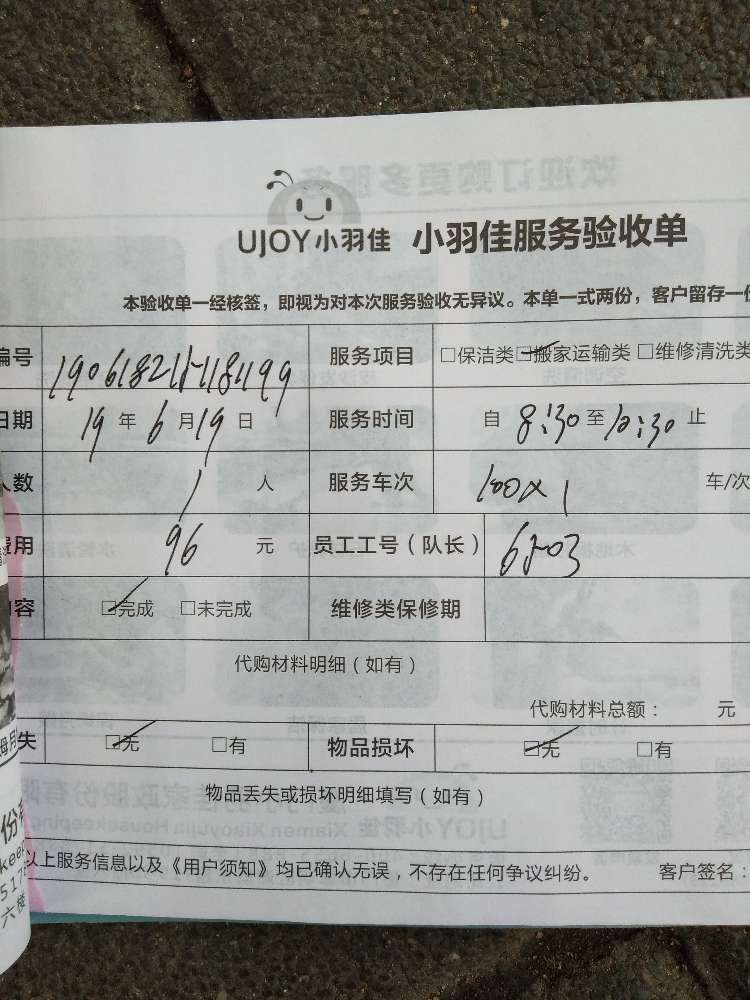 UJOY小羽佳 小羽佳服务验收单
本验收单一经核签，即视为对本次服务验收无异议。本单一式两份，客户留存一份
编号 服务项目 □保洁类 □搬家运输类 □维修清洗类
日期 19年6月19日 服务时间 自 8:30 至 10:30 止
人数 1 人 服务车次 100×1 车/次
费用 96 元 员工工号（队长） 6503
内容 □完成 □未完成 维修类保修期
代购材料明细（如有）
代购材料总额： 元
失 □无 □有 物品损坏 □无 □有
物品丢失或损坏明细填写（如有）
以上服务信息以及《用户须知》均已确认无误，不存在任何争议纠纷。 客户签名：